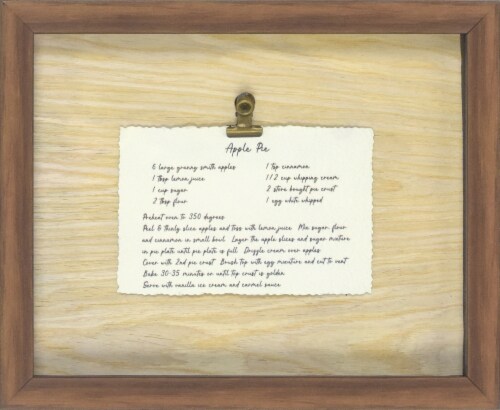 Apple Pie
6 large granny smith apples
1 tbsp lemon juice
1 cup sugar
2 tbsp flour
1 tsp cinnamon
1/2 cup whipping cream
2 store bought pie crust
1 egg white whipped
Preheat oven to 350 degrees
Peel & thinly slice apples and toss with lemon juice. Mix sugar, flour
and cinnamon in small bowl. Layer the apple slices and sugar mixture
in pie plate until pie plate is full. Drizzle cream over apples.
Cover with 2nd pie crust. Brush top with egg mixture and cut to vent.
Bake 30-35 minutes or until top crust is golden.
Serve with vanilla ice cream and carmel sauce